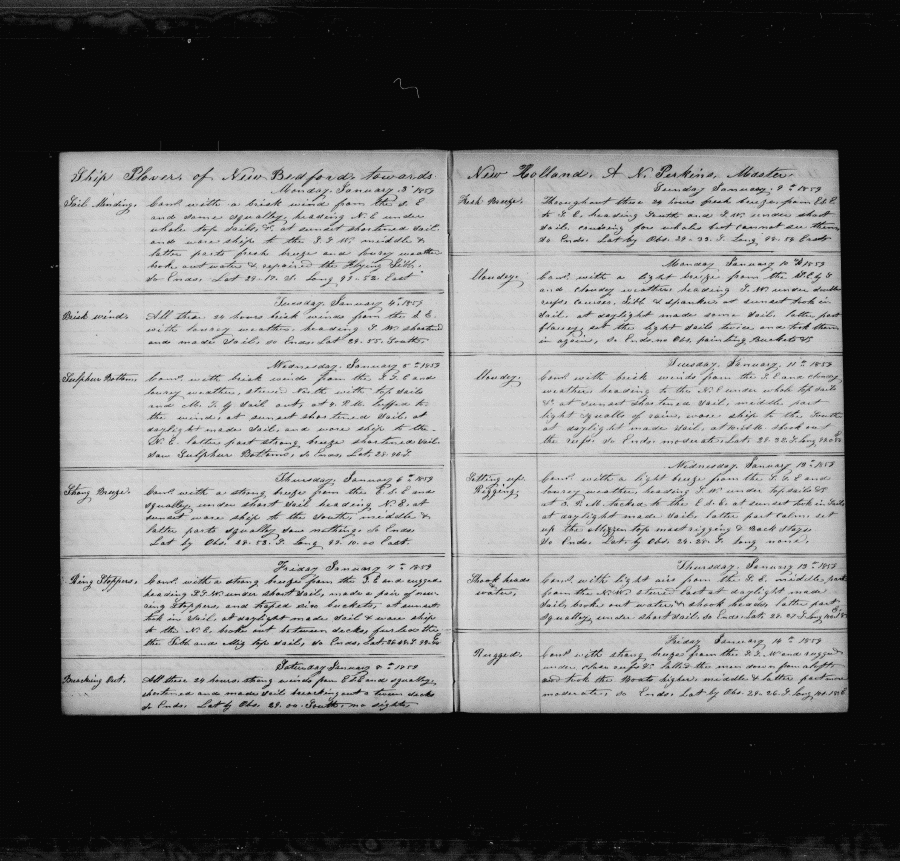 Ship Plover, of New Bedford, towards
Monday, January 3d 1859
Sail Mending. Comd. with a brisk wind from the S. E
and some squally, heading N. E under
whole top sails, &. at sunset shortened sail
and wore ship to the S. S. W. middle &
latter parts fresh breeze and lowry weather
broke out water & repaired the Flying Jibb.
So Ends. Lat 28. 17. S. Long 93. 52. East.
Tuesday, January 4th 1859
Brisk winds. All these 24 hours brisk winds from the S. E.
with lowry weather, heading S. W. shortened
and made sail, so Ends. Lat 29. 55. South.
Wednesday, January 5th 1859
Sulphur Bottom. Comd. with brisk winds from the S. E and
lowry weather, steered North with top sails
and M. T. G sail out, at 4. P.M. luffed to
the wind, at sunset shortened sail, at
daylight made sail, and wore ship to the
N. E. latter part strong breeze shortened sail
saw Sulphur Bottoms, so Ends. Lat. 28.
Thursday, January 6th 1859
Strong Breeze. Comd. with a strong breeze from the E. S. E and
squally, under short sail heading N. E. at
sunset wore ship to the South, middle &
latter parts squally saw nothing. So Ends
Lat by Obs. 28. 53. S. Long 93. 10. 00 East.
Friday January 7th 1859
Ring Stoppers. Comd. with a strong breeze from the S. E and rugged
heading S. S. W. under short sail, made a pair of new
ring stoppers, and hoped six buckets, at sunset
took in sail, at daylight made sail & wore ship
to the N. E. broke out between decks furled the
the Jibb and Miz top sail, so Ends. Lat.
Saturday January 8th 1859
Breaking Out. All these 24 hours, strong winds from E. S. E and squally,
shortened and made sail breaking out a tween decks
So Ends. Lat by Obs. 29. 00. South. no sights
New Holland. A. N. Perkins, Master.
Sunday January, 9th 1859
Fresh Breeze. Throughout these 24 hours fresh breeze, from E. S. E
to S. E. heading South and S. W. under short
sail cruising for whales but can not see them
So Ends. Lat by Obs. 29. 33. S. Long 92. 59 East
Monday, January 10th 1859
Cloudey. Comd. with a light breeze from the
and cloudy weather heading S. W. under double
reefs courses, Jibb & spanker, at sunset took in
sail, at daylight made some sail latter part
flawey, set the light sails twice, and took them
in again, So Ends. no Obs. painting Buckets &.
Tuesday, January, 11th 1859
Cloudey. Comd. with brisk winds from the S. E and cloudy
weather, heading to the N. E under whole top sails
&. at sunset shortened sail, middle part
light squalls of rain, wore ship to the South
at daylight made sail, shook out
the reefs So Ends. moderate. Lat. 28. 32. S. Long
Wednesday, January 12th 1859
Setting up Rigging. Comd. with a light breeze from the S. S. E and
lowry weather, heading S. W. under top sails &.
at 3. P. M. tacked to the E. S. E. at sunset took in sail
at daylight made sail latter part calm, set
up the Mizzen top mast rigging & Back Stays
So Ends. Lat. by Obs. 28. 28. S. Long none.
Thursday, January 13th 1859
Shook heads water. Comd. with light airs from the S. E. middle part
from the N. W. steered East at daylight made
sail, broke out water, & shook heads, latter part
squally, under short sail, so Ends. Lat. 28. 27. S. Long
Friday January 14th 1859
Rugged. Comd. with strong breeze from the S. S. W and rugged
under close reefs &. called the men down from aloft
and took the Boats higher, middle & latter part more
moderate, so Ends. Lat by Obs. 28. 26. S. Long